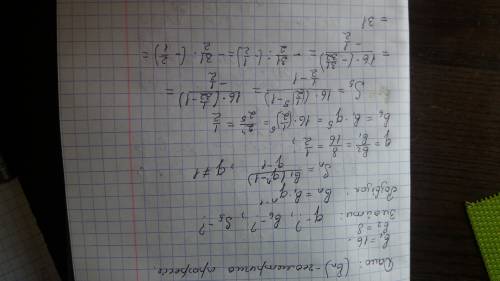 Дано: (bₙ) - геометрична прогресія.
b₁ = 16.
b₂ = 8
Знайти: q - ?, b₆ - ?, S₅ - ?
bₙ = b₁ · qⁿ⁻¹
Sₙ = b₁(qⁿ-1) / q-1, q ≠ 1
q = b₂/b₁ = 8/16 = 1/2;
b₆ = b₁ · q⁵ = 16 · (1/2)⁵ = 2⁴/2⁵ = 1/2
S₅ = 16 · ((1/2)⁵ - 1) / (1/2 - 1) = 16 · (1/32 - 1) / (-1/2) =
= 16 · (-31/32) / (-1/2) = - 31/2 : (-1/2) = - 31/2 · (-2/1) =
= 31